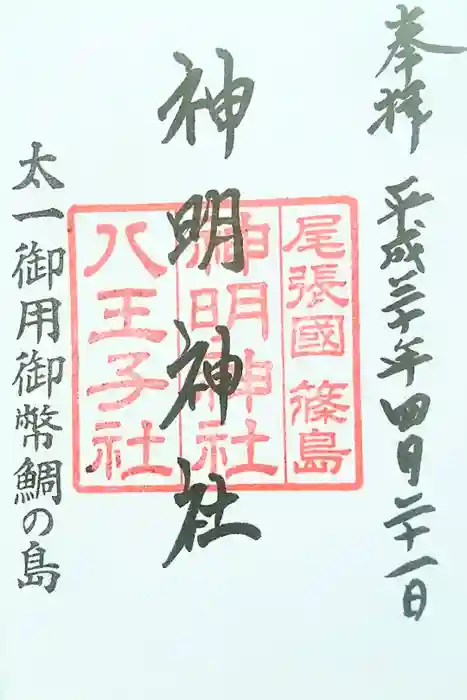 奉拝 平成三十年四月二十一日
尾張國 篠島
神明神社
神明神社
八王子社
太一御用御幣鯛の島